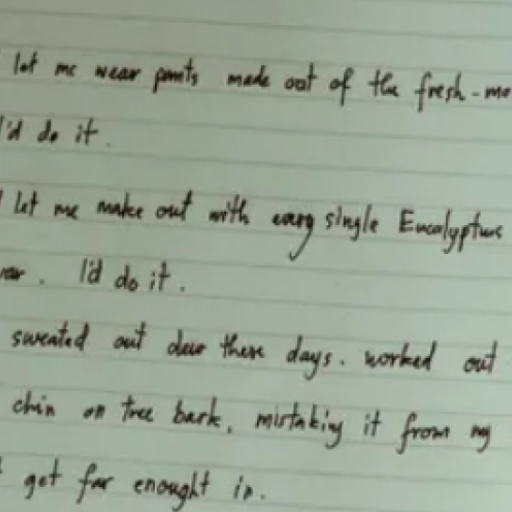 let me wear pants made out of the fresh-mo
I'd do it.
let me make out with every single Eucalyptus
I'd do it.
sweated out dew these days. worked out
chin on tree bark, mistaking it from my
get far enought in.